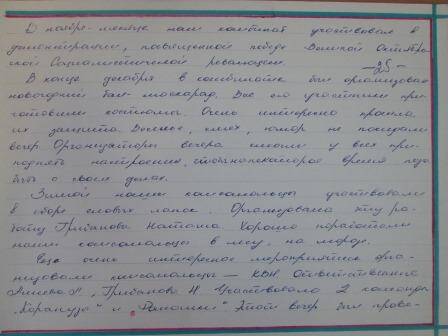 В ноябре месяце наш комбинат участвовал в
демонстрации, посвященной победе Великой Октябрь-
ской Социалистической революции.
В конце декабря в комбинате был организован
новогодний бал-маскарад. Все его участники при-
готовили костюмы. Очень интересно прошла
их защита. Веселье, смех, юмор не покидали
вечер. Организаторы вечера смогли у всех при-
поднять настроение, чтобы на некоторое время поза
быть о своих делах.
Зимой наши комсомольцы участвовали
в сборе еловых лапок. Организовала эту ра-
боту Грибанова Наташа. Хорошо поработали
наши комсомольцы в лесу, на морозе.
Еще очень интересное мероприятие орга-
низовали комсомольцы – КВН. Ответственные
Грибанова Н. Участвовало 2 команды
и "Ромашки". Этот вечер был прове-